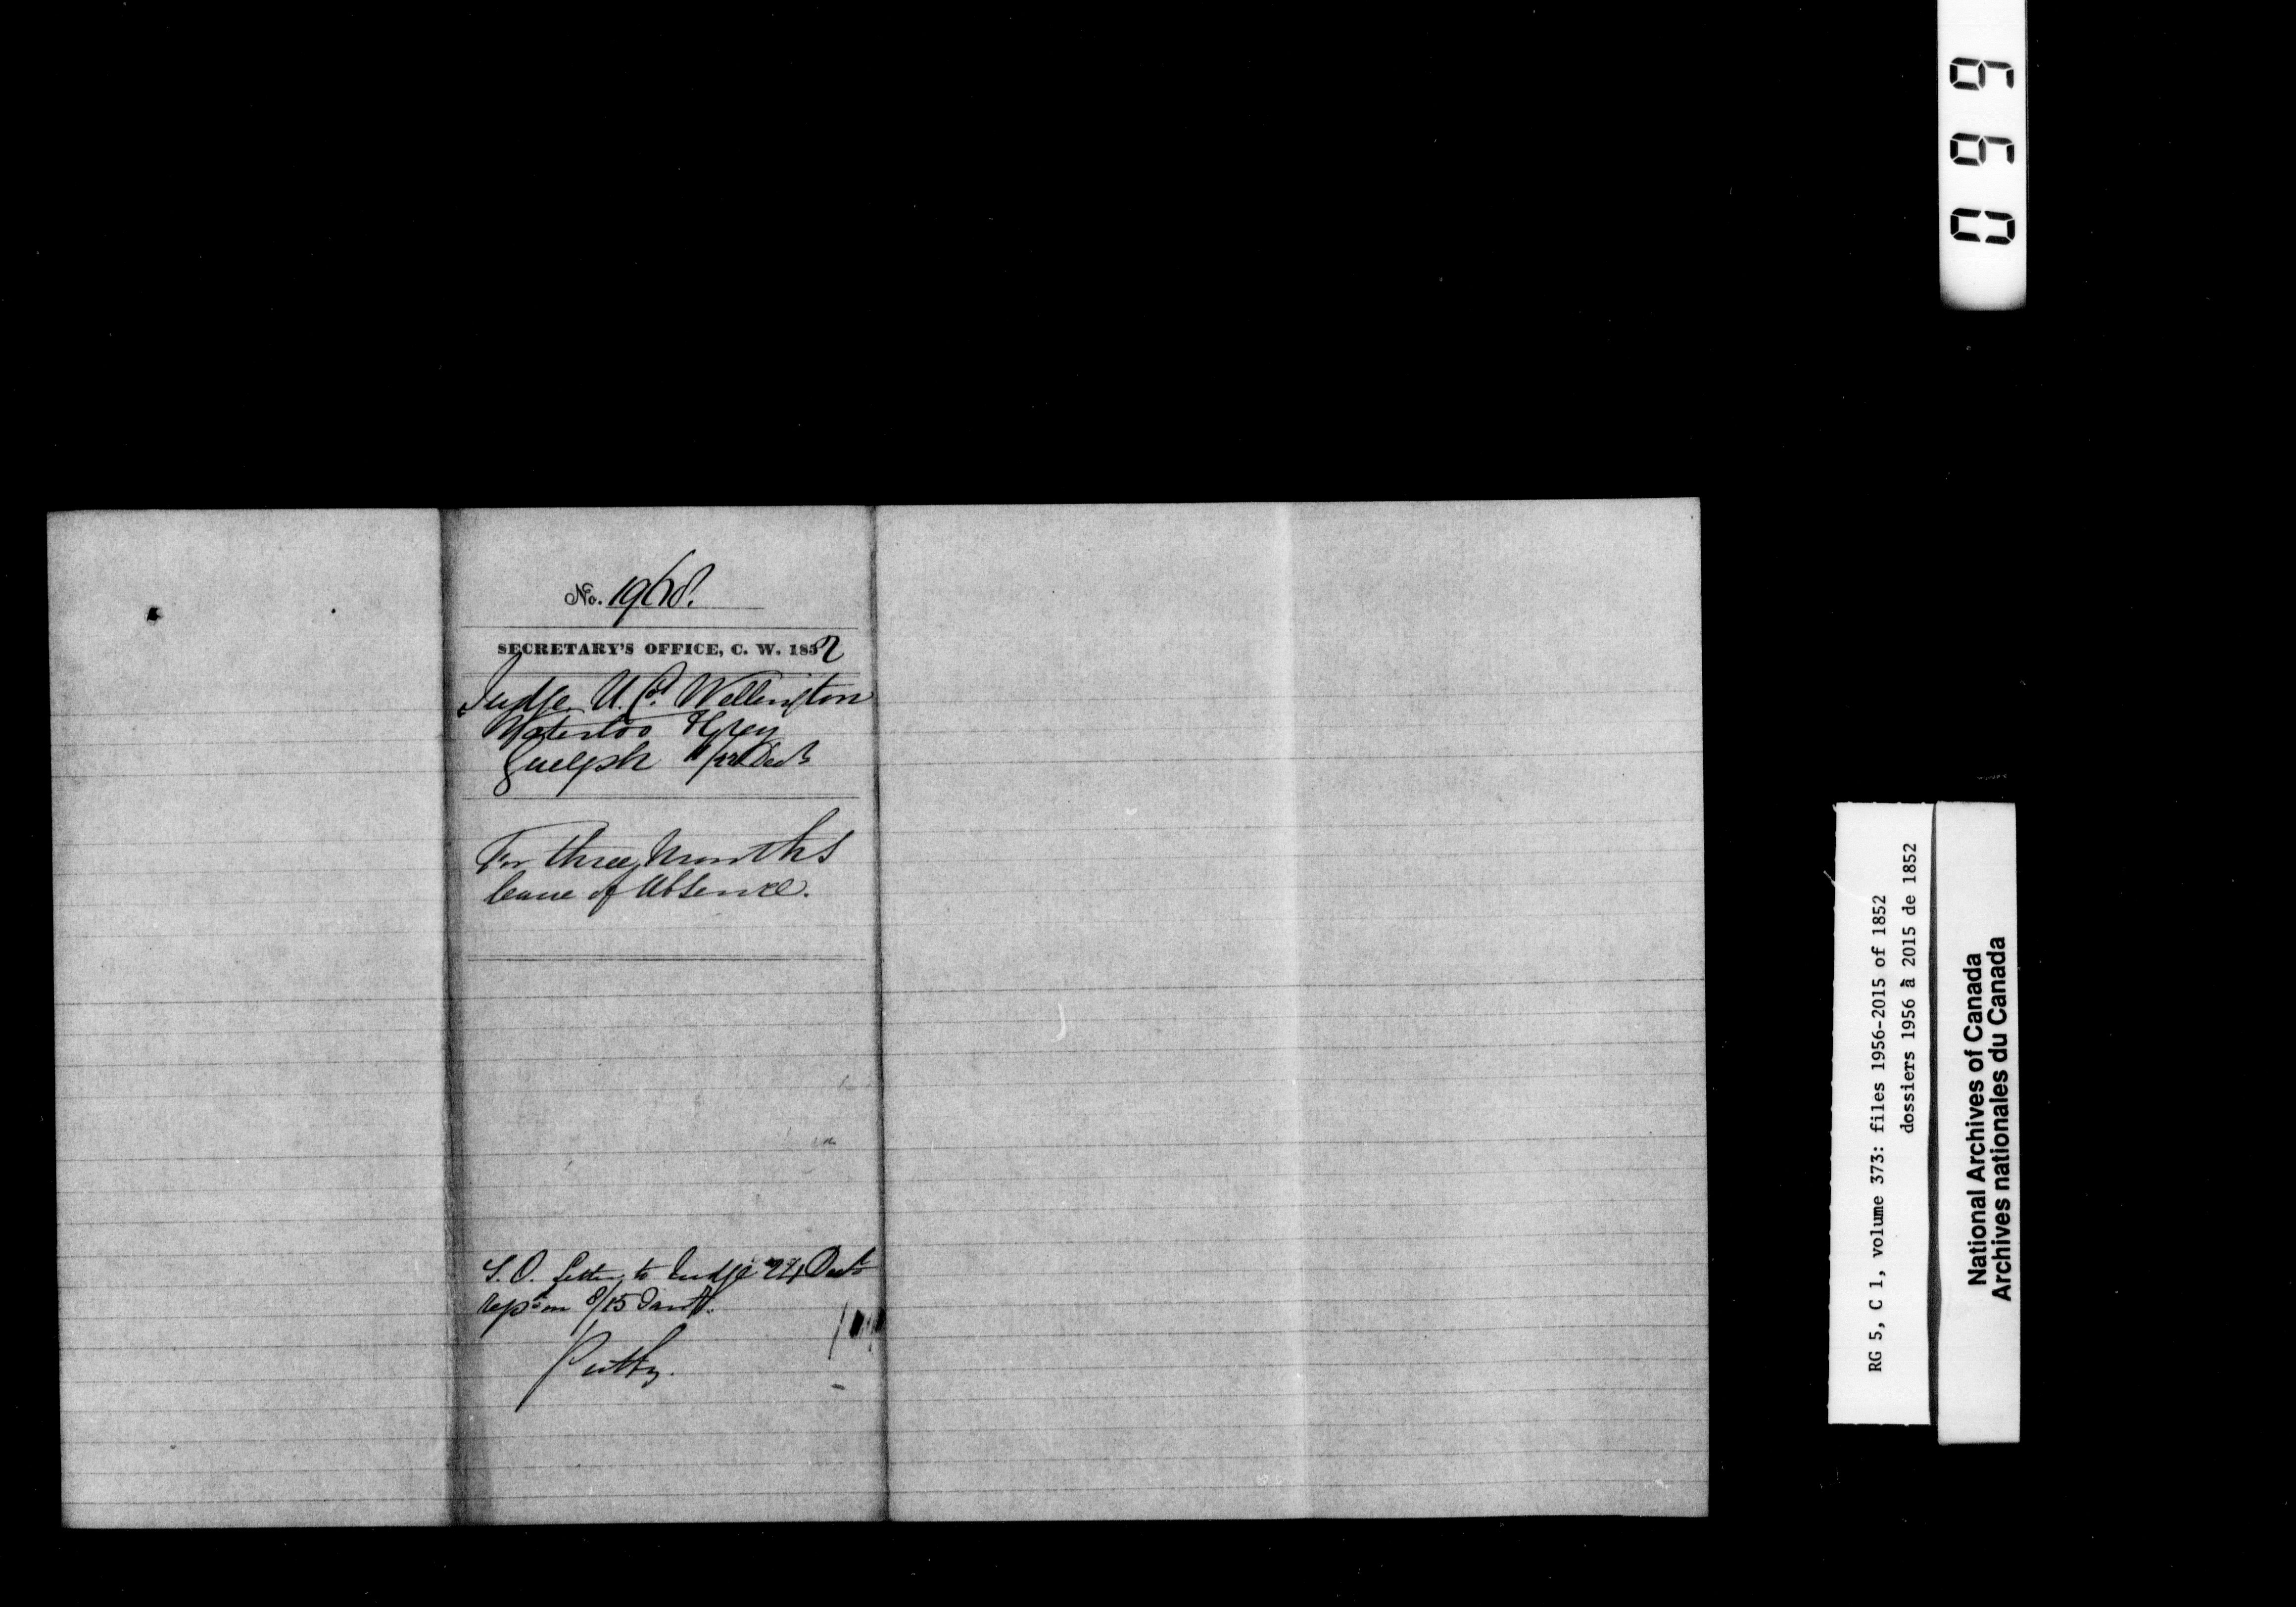 No. 1968.
SECRETARY'S OFFICE, C. W. 1852
Judge U. Cos Wellington
Waterloo & Grey
Guelph /22 Decr
For three Months
leave of Absence.
S. O. Letter to Judge 24 Decr
on 8/15 Jany.
RG 5, C 1, volume 373: files 1956-2015 of 1852
dossiers 1956 à 2015 de 1852
National Archives of Canada
Archives nationales du Canada
0 6 9 9